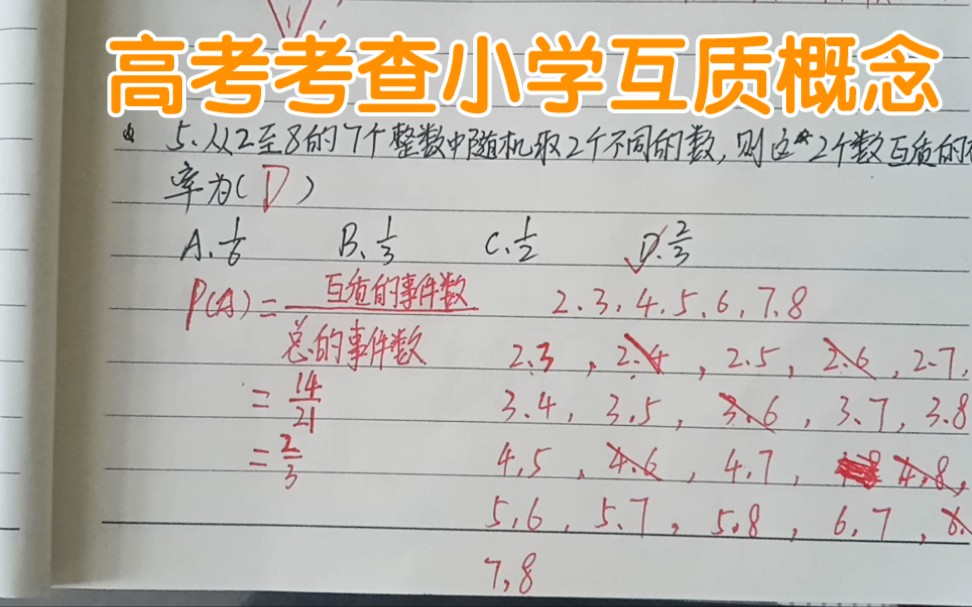 高考考查小学互质概念
5.从2至8的7个整数中随机取2个不同的数,则这2个数互质的
率为( D )
A. 1/6 B. 1/3 C. 1/2 D. 2/3
P(A) = 互质的事件数 / 总的事件数
2.3,4,5,6,7,8
= 14/21
= 2/3
2.3, 2.4, 2.5, 2.6, 2.7,
3.4, 3.5, 3.6, 3.7, 3.8
4.5, 4.6, 4.7, 4.8,
5.6, 5.7, 5.8, 6.7,
7,8